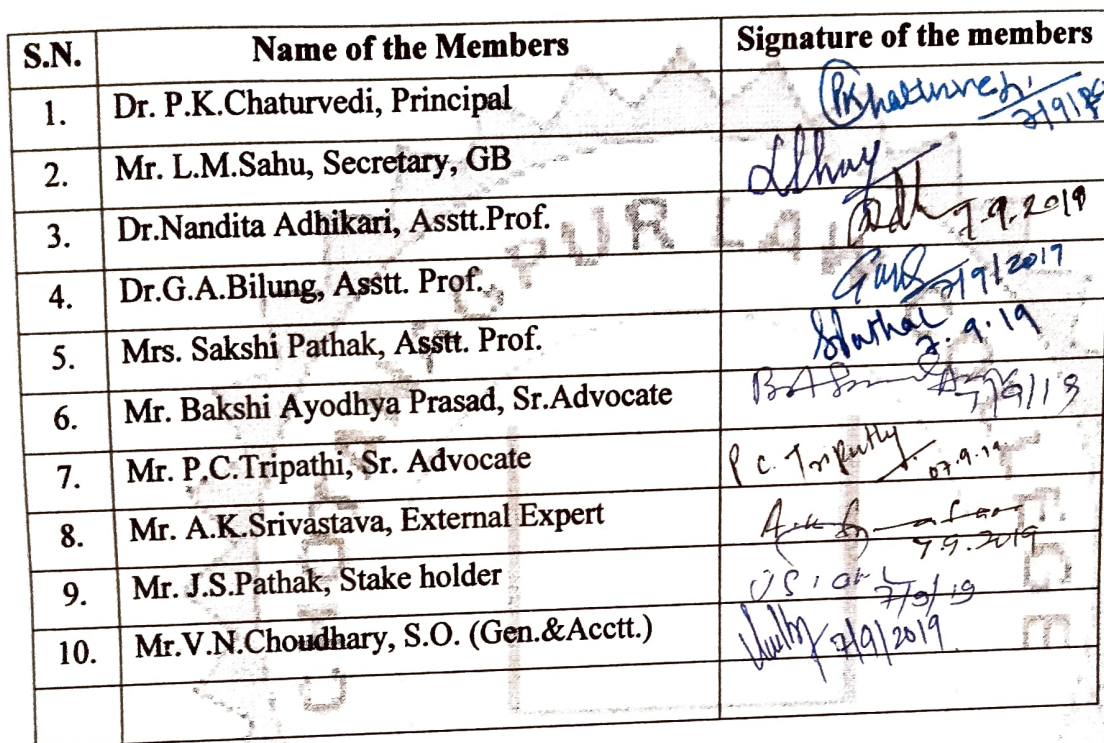 S.N. Name of the Members Signature of the members
1. Dr. P.K.Chaturvedi, Principal PKChaturvedi 7/9/19
2. Mr. L.M.Sahu, Secretary, GB
3. Dr.Nandita Adhikari, Asstt.Prof. 7.9.2019
4. Dr.G.A.Bilung, Asstt. Prof. 7/9/2019
5. Mrs. Sakshi Pathak, Asstt. Prof. SPathak 7.9.19
6. Mr. Bakshi Ayodhya Prasad, Sr.Advocate 7/9/19
7. Mr. P.C.Tripathi, Sr. Advocate P C. Tripathy 07.9.19
8. Mr. A.K.Srivastava, External Expert 7.9.2019
9. Mr. J.S.Pathak, Stake holder 7/9/19
10. Mr.V.N.Choudhary, S.O. (Gen.&Acctt.) 7/9/2019